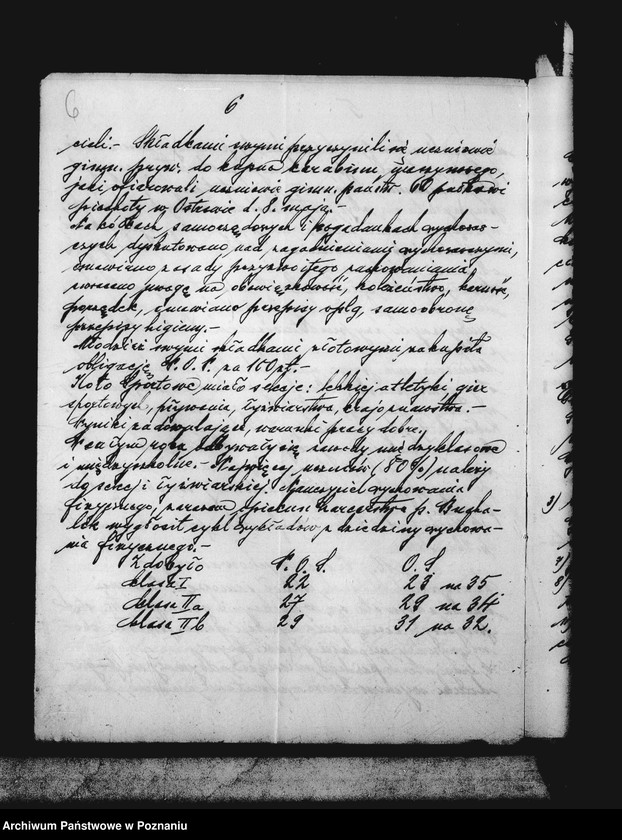 6 6
cieli.- Składkami swymi przyczynili się uczniowie
gimn. pryw. do kupna karabinu maszynowego,
jaki ofiarowali uczniowie gimn. państw. 60 pułkowi
piechoty w Ostrowie d. 8. maja.-
Na kółkach samorządowych i pogadankach wychowaw-
czych dyskutowano nad zagadnieniami wychowawczymi,
omawiano zasady przyzwoitego zachowania
zwracano uwagę na obowiązkowość, koleżeństwo, karność,
porządek, omawiano przepisy oplg, samoobronę
przepisy higieny.-
Młodzież swymi składkami złotowymi zakupiła
obligację P. O. P. za 100 zł.-
Koło Sportowe miało sekcje: lekkiej atletyki gier
sportowych, pływania, łyżwiarstwa, krajoznawstwa.-
Wyniki zadowalające, warunki pracy dobre.
W całym roku odbywały się zawody międzyklasowe
i międzyszkolne.- Najwięcej uczniów (80%) należy
do sekcji łyżwiarskiej. Nauczyciel wychowania
fizycznego, zarazem opiekun harcerstwa p.
wygłosił cykl wykładów z dziedziny wychowa-
nia fizycznego.-
Zdobyło P. O. S. O. S
klasa I 22 23 na 35
klasa II a 27 29 na 34
klasa II b 29 31 na 32.
3)
7)
8)
Archiwum Państwowe w Poznaniu